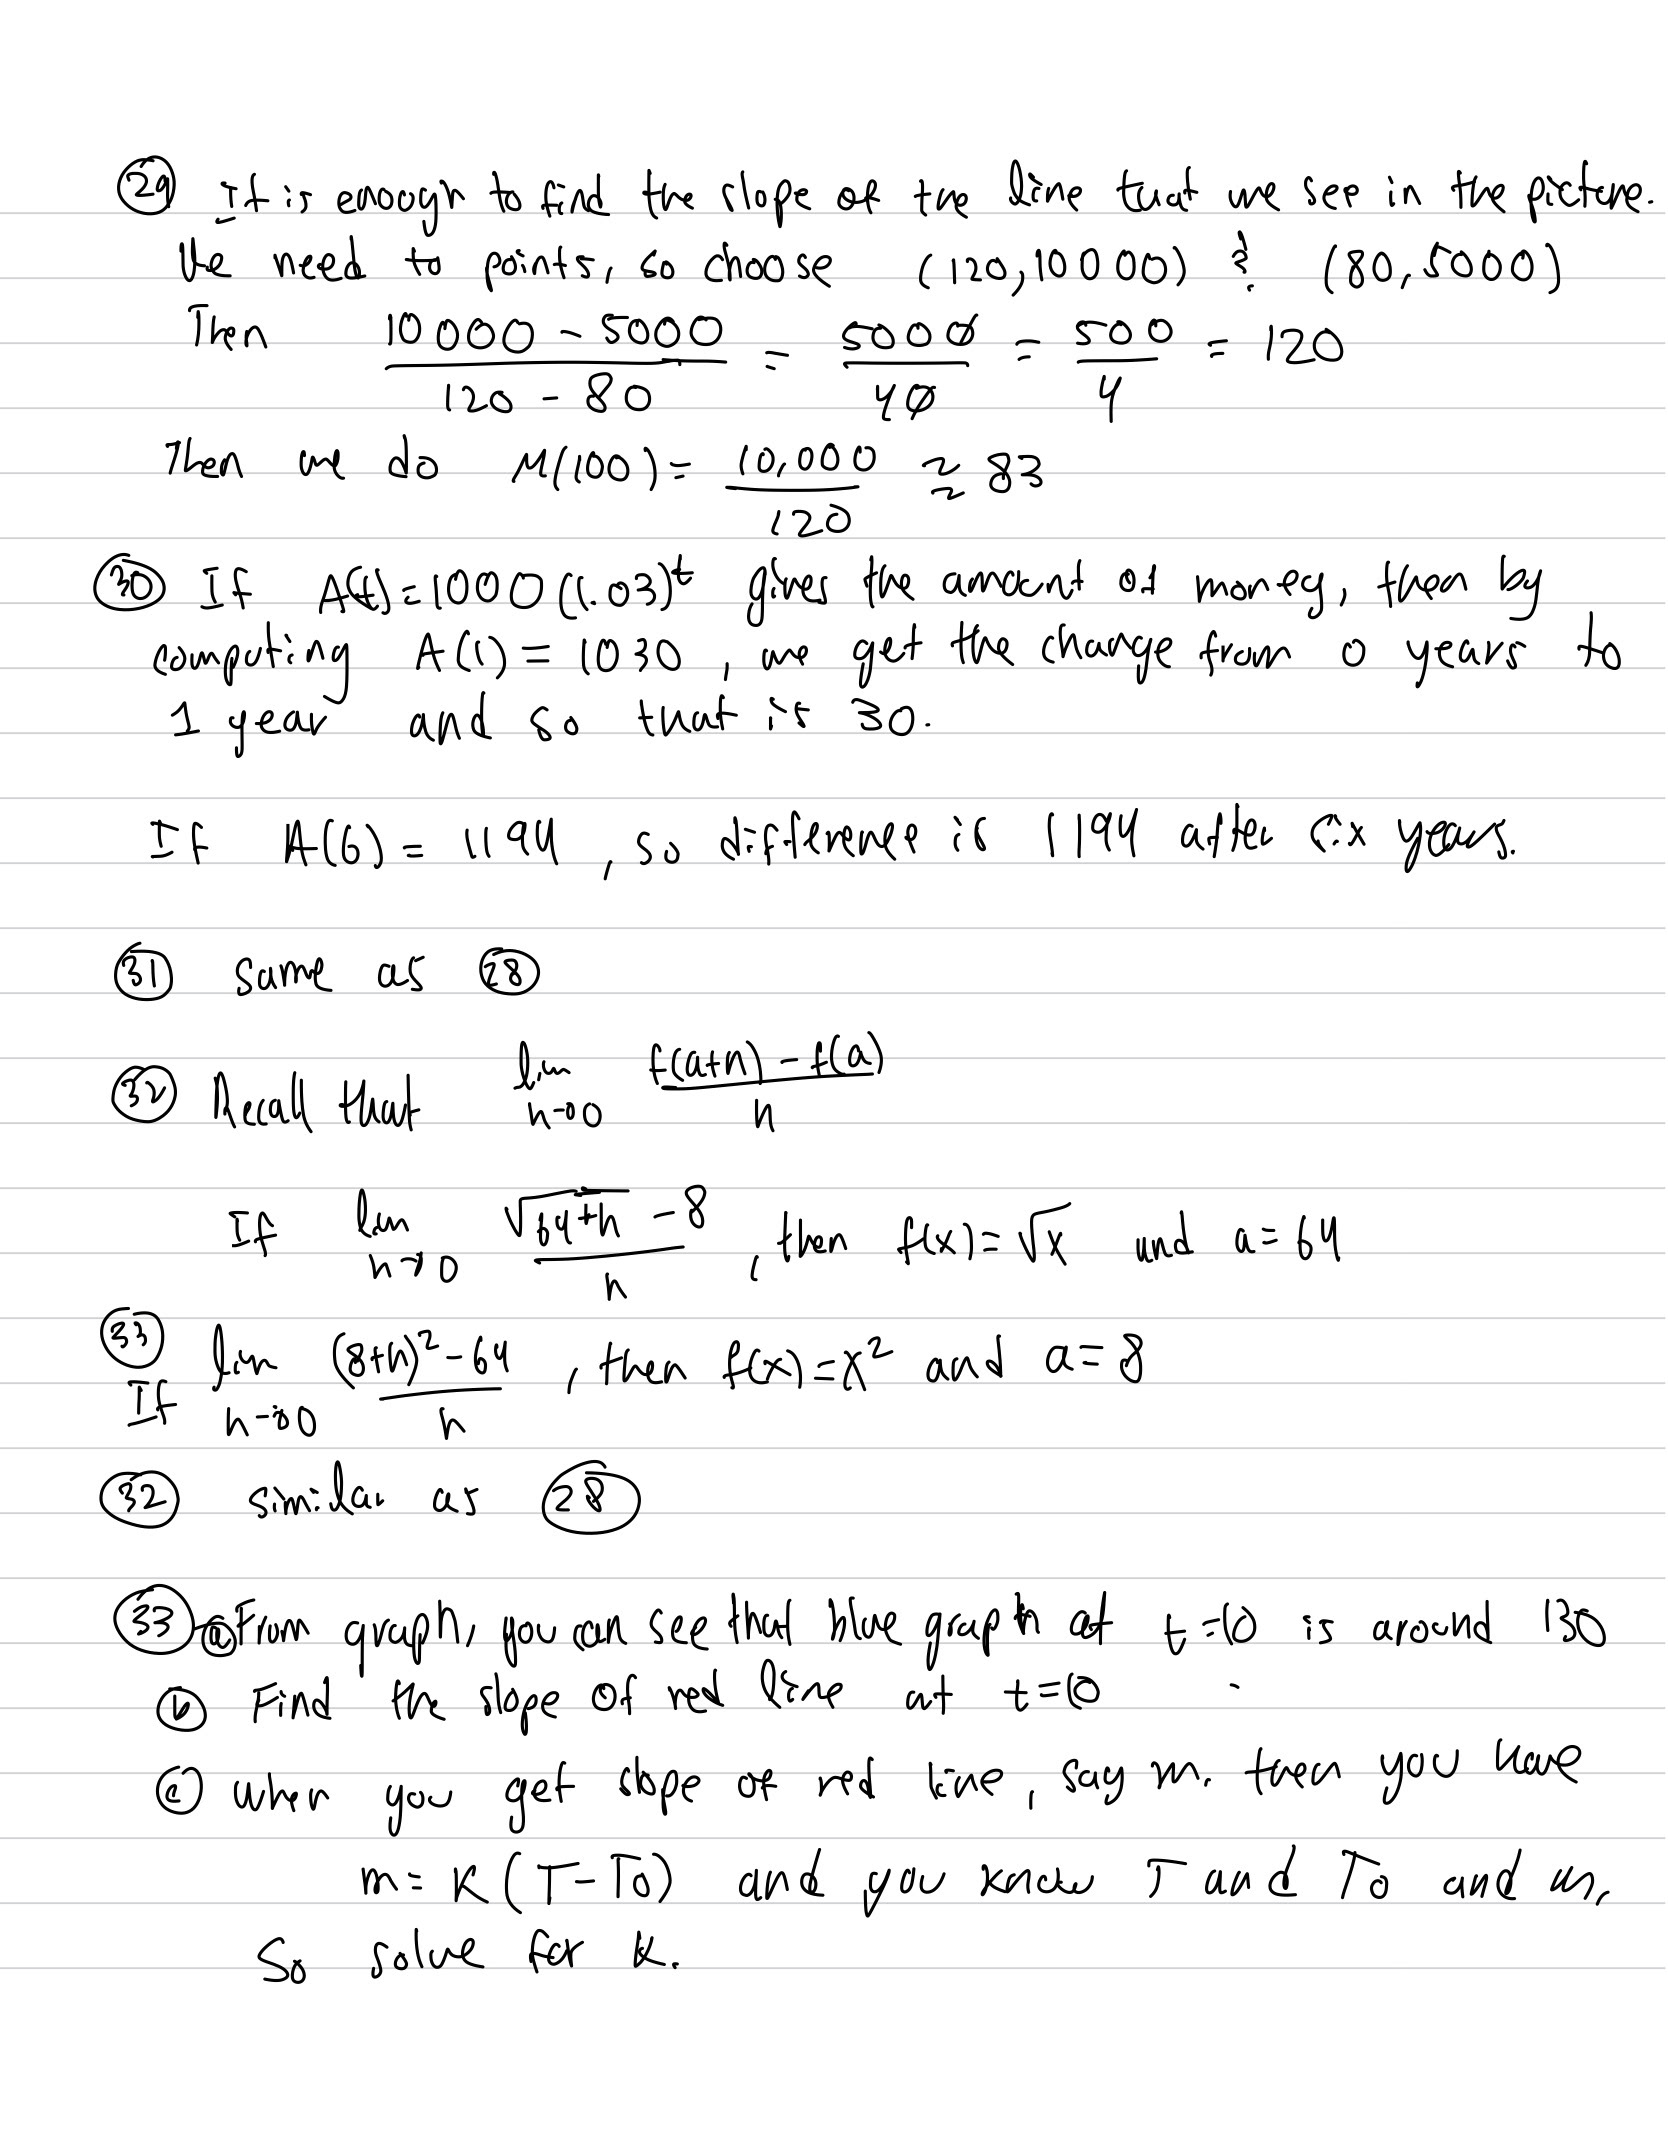 (29) It is enough to find the slope of the line that we see in the picture.
We need to points, so choose (120,10000) & (80,5000)
Then (10000 - 5000)/(120 - 80) = 5000/40 = 500/4 = 120
Then we do M(100) = 10,000/120 ≈ 83
(30) If A(t) = 1000(1.03)^t gives the amount of money, then by
computing A(1) = 1030, we get the change from 0 years to
1 year and so that is 30.
If A(6) = 1194, so difference is 1194 after six years.
(31) same as (28)
(32) Recall that lim h→0 (f(a+h) - f(a))/h
If lim h→0 (√(64+h) - 8)/h, then f(x) = √x and a = 64
(33) If lim h→0 ((8+h)² - 64)/h, then f(x) = x² and a = 8
(32) similar as (28)
(33) (a) From graph, you can see that blue graph at t=10 is around 130
(b) Find the slope of red line at t=10
(c) when you get slope of red line, say m. then you have
m = K(T-To) and you know T and To and m.
So solve for k.